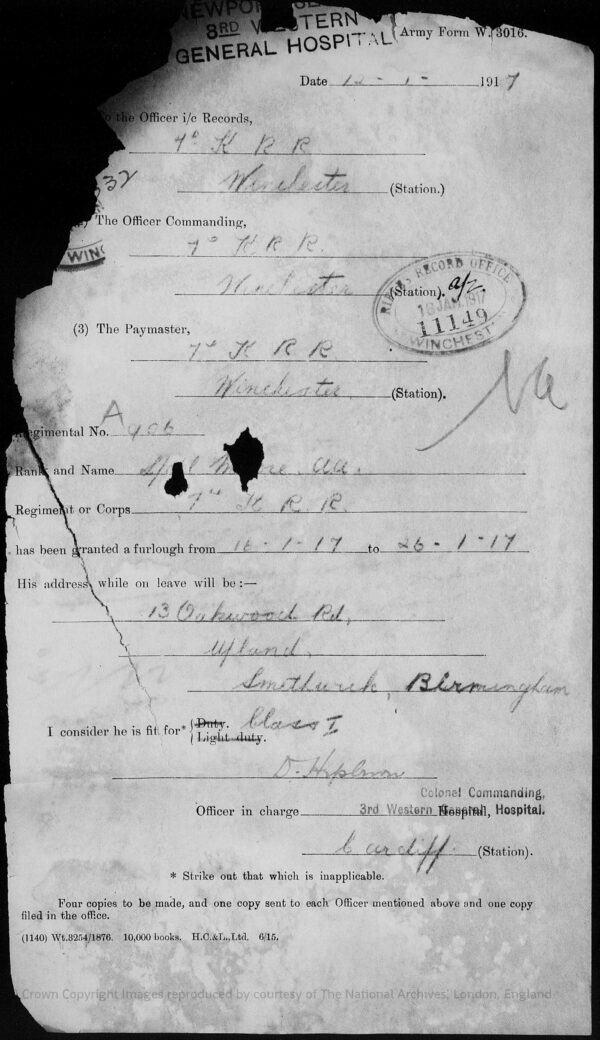 3RD WESTERN
GENERAL HOSPITAL
Army Form W. 3016.
Date - 1 - 1917
To the Officer i/c Records,
7th K R R
Winchester (Station.)
32
The Officer Commanding,
7th K R R.
Winchester (Station).
RIFLES RECORD OFFICE
16 JAN. 1917
11149
WINCHEST
WIN
(3) The Paymaster,
7th K R R
Winchester (Station).
Regimental No. A 406
Rank and Name A.A.
Regiment or Corps 7th K. R. R.
has been granted a furlough from 16-1-17 to 26-1-17
His address while on leave will be:—
13 Oakwood Rd,
Upland,
Smethwick, Birmingham
I consider he is fit for* { Duty. Class I
{ Light duty.
Colonel Commanding,
Officer in charge 3rd Western General Hospital, Hospital.
Cardiff (Station).
* Strike out that which is inapplicable.
Four copies to be made, and one copy sent to each Officer mentioned above and one copy
filed in the office.
(1140) Wt.3254/1876. 10,000 books. H.C.&L.,Ltd. 6/15.
Crown Copyright Images reproduced by courtesy of The National Archives, London, England.